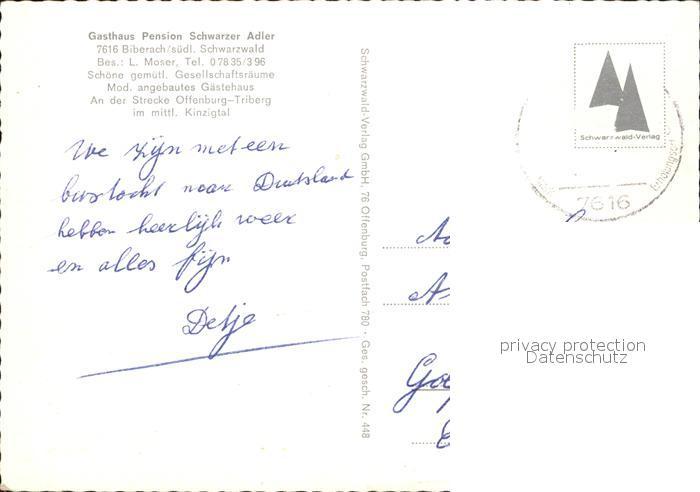 Gasthaus Pension Schwarzer Adler
7616 Biberach/südl. Schwarzwald
Bes.: L. Moser, Tel. 0 78 35/3 96
Schöne gemütl. Gesellschaftsräume
Mod. angebautes Gästehaus
An der Strecke Offenburg—Triberg
im mittl. Kinzigtal
We zijn met een
bustocht naar Duitsland
hebben heerlijk weer
en alles fijn
Detje
Schwarzwald-Verlag GmbH, 76 Offenburg, Postfach 780 · Ges. gesch. Nr. 448
Schwarzwald-Verlag
Erholungsort
7616
privacy protection
Datenschutz